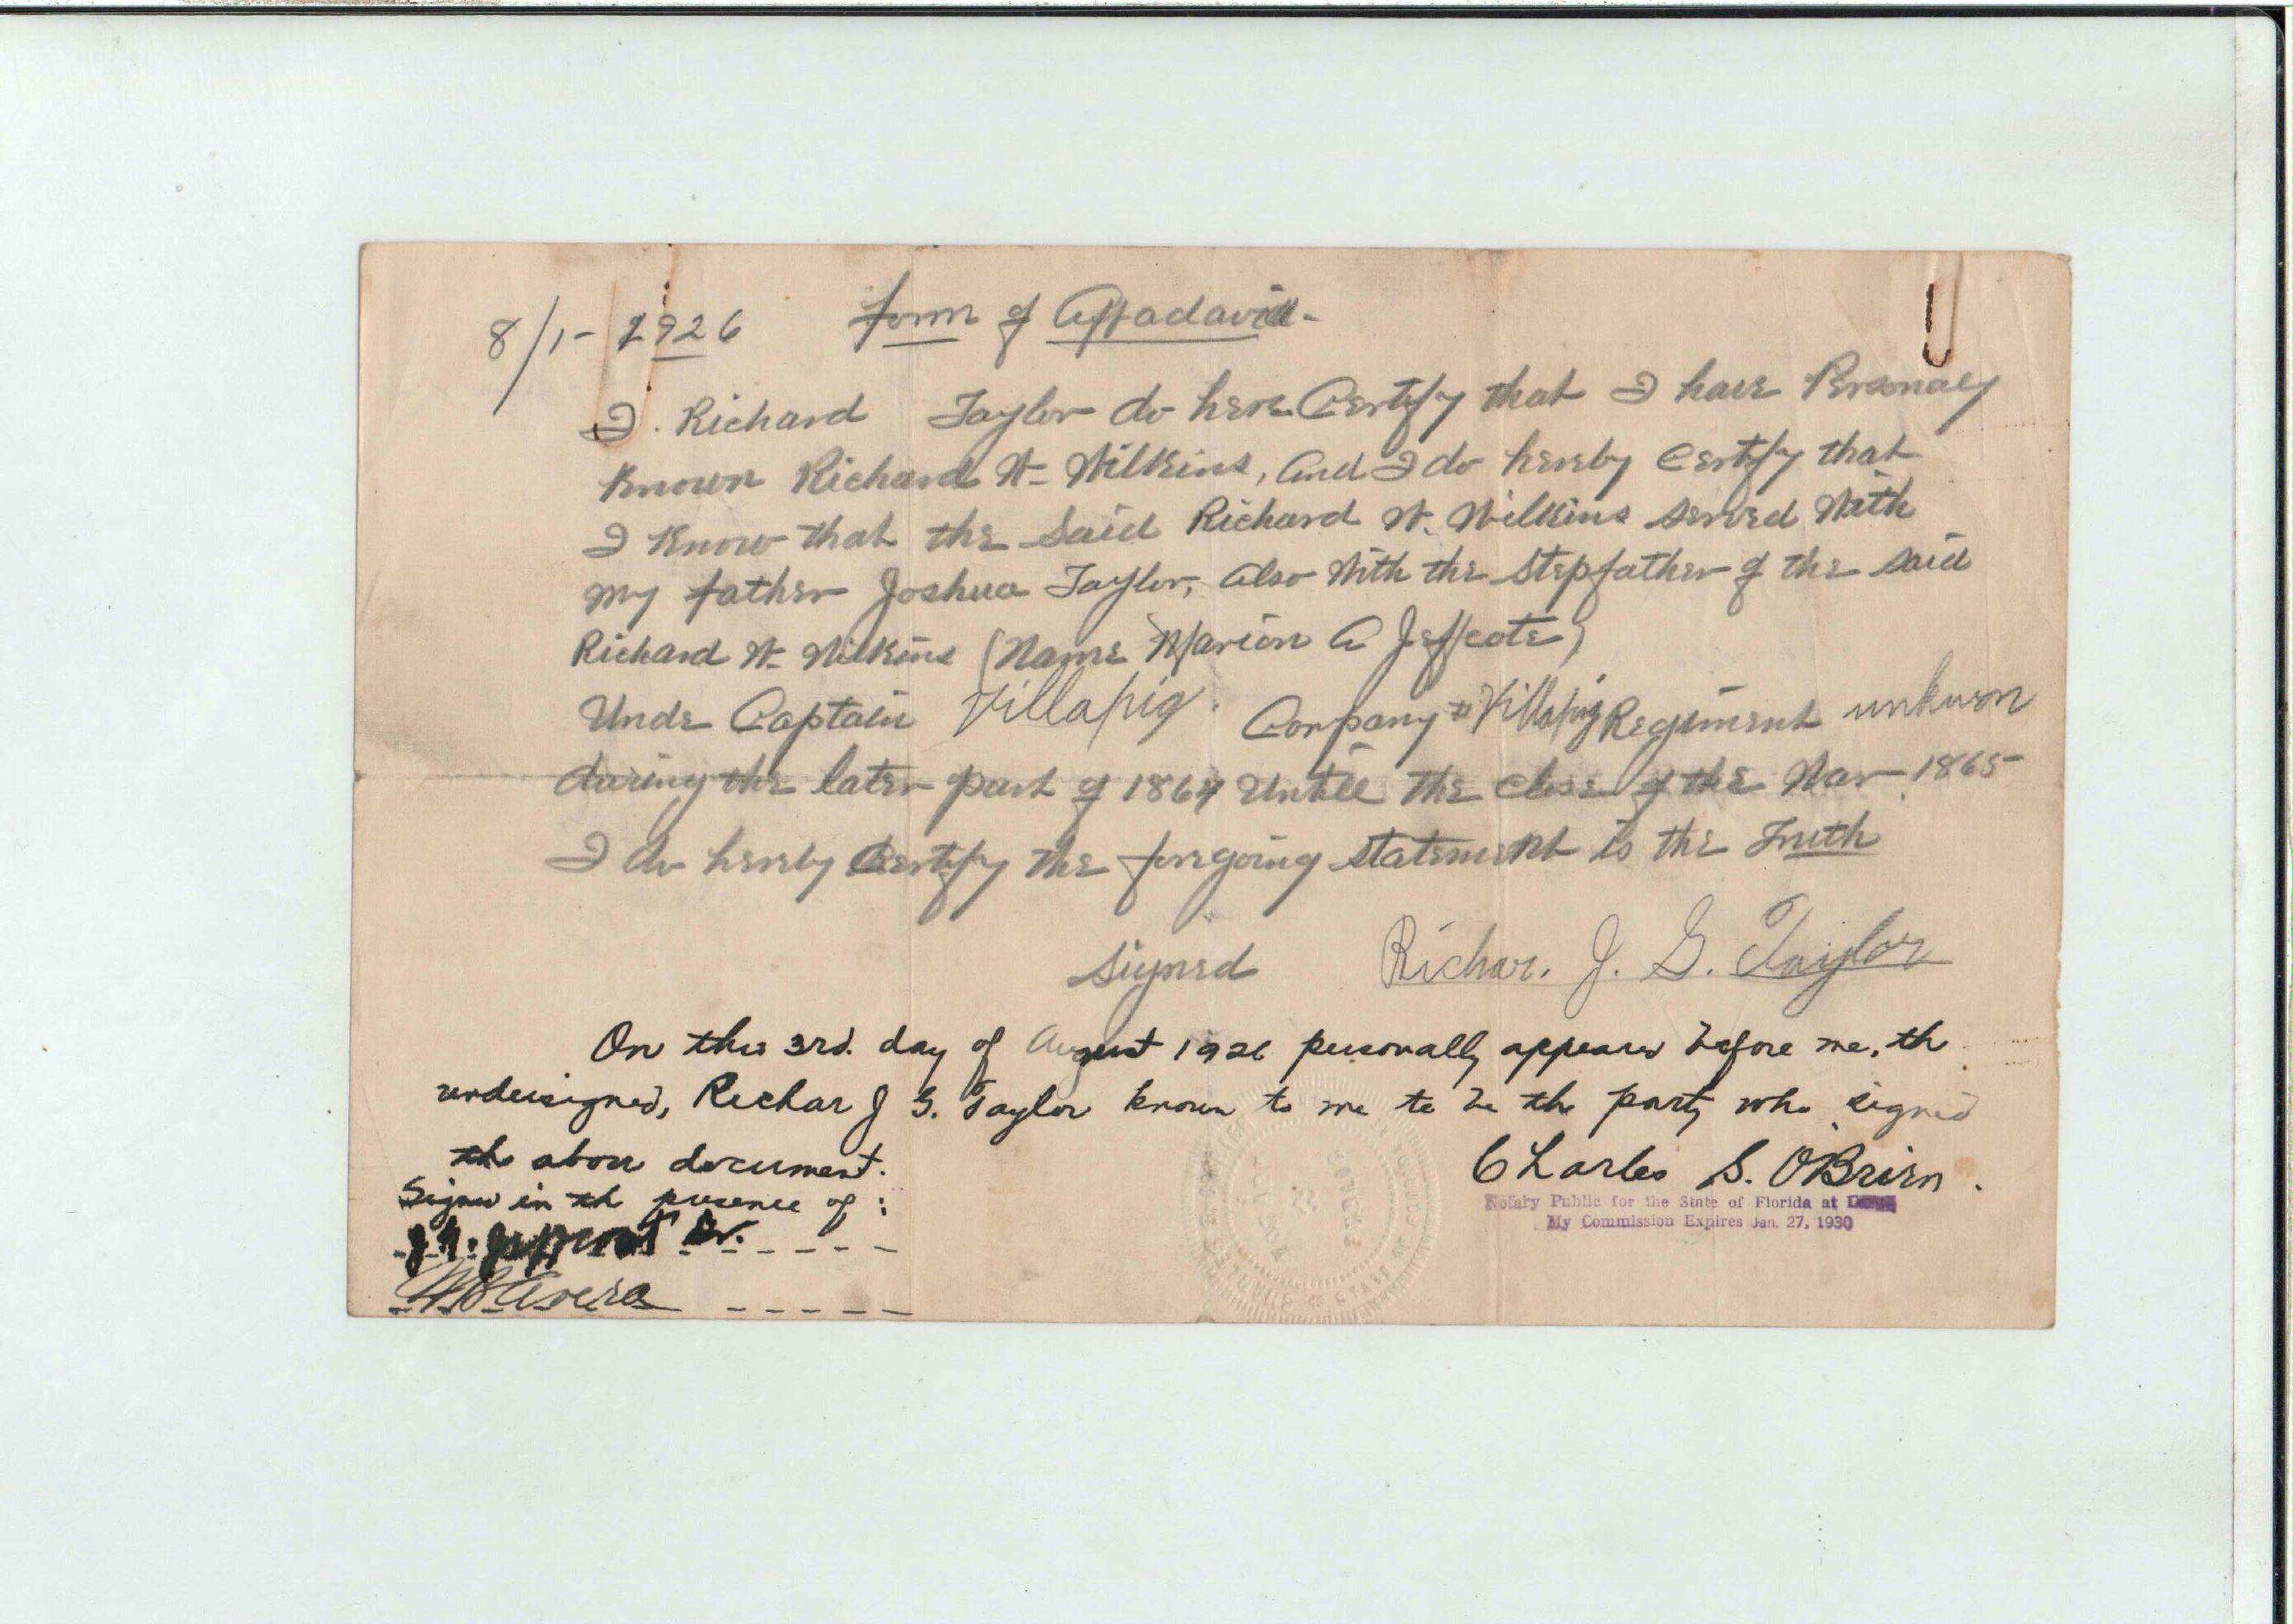 8/1- 1926 Form of Affadavid-
I. Richard Taylor do here Certify that I have Personaly
Known Richard W- Wilkins, And I do hereby Certify that
I Know that the Said Richard W. Wilkins served With
My father Joshua Taylor, Also With the Stepfather of the said
Richard W- Wilkins (Name Marion A Jeffcote)
Unde Captain Villapig. Company "Villapig Regiment unkwon
during the later part of 1864 Untill the close of the War 1865
I do hereby Certify the foregoing statement is the Truth
Signed Richar. J. G. Taylor
On this 3rd. day of August 1926 personally appeared before me, th
undersigned, Richar J G. Taylor known to me to be the party who signed
th above document.
Signed in th presence of :
Charles S. O'Brien.
Notary Public for the State of Florida at
My Commission Expires Jan. 27, 1930
Sr.